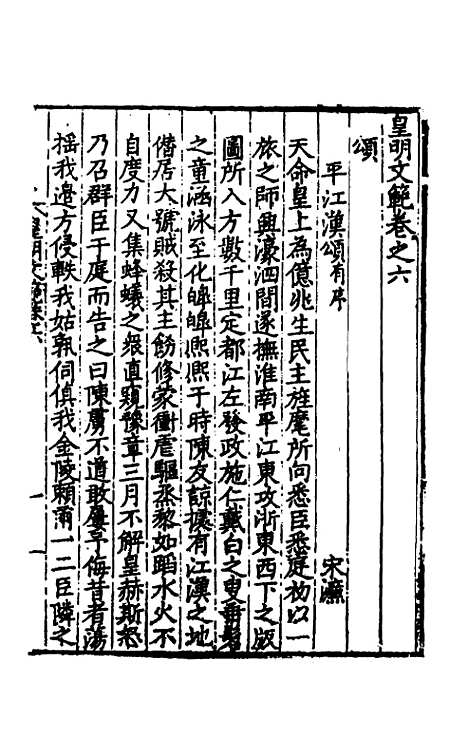 皇明文範卷之六
頌
平江漢頌有序
宋濂
天命皇上為億兆生民主旌麾所向悉臣悉庭初以一
旅之師興濠泗間遂撫淮南平江東攻浙東西下之版
圖所入方數千里定都江左發政施仁戴白之叟垂髫
之童涵泳至化皞皞熙熙于時陳友諒據有江漢之地
僭居大號賊殺其主飭修蒙衝虐驅烝黎如蹈水火不
自度力又集蜂蟻之眾直頫豫章三月不解皇赫斯怒
乃召群臣于庭而告之曰陳虜不道敢屢予侮昔者蕩
揺我邊方侵軼我姑孰伺俱我金陵賴爾一二臣隣之
皇明文範卷六
一